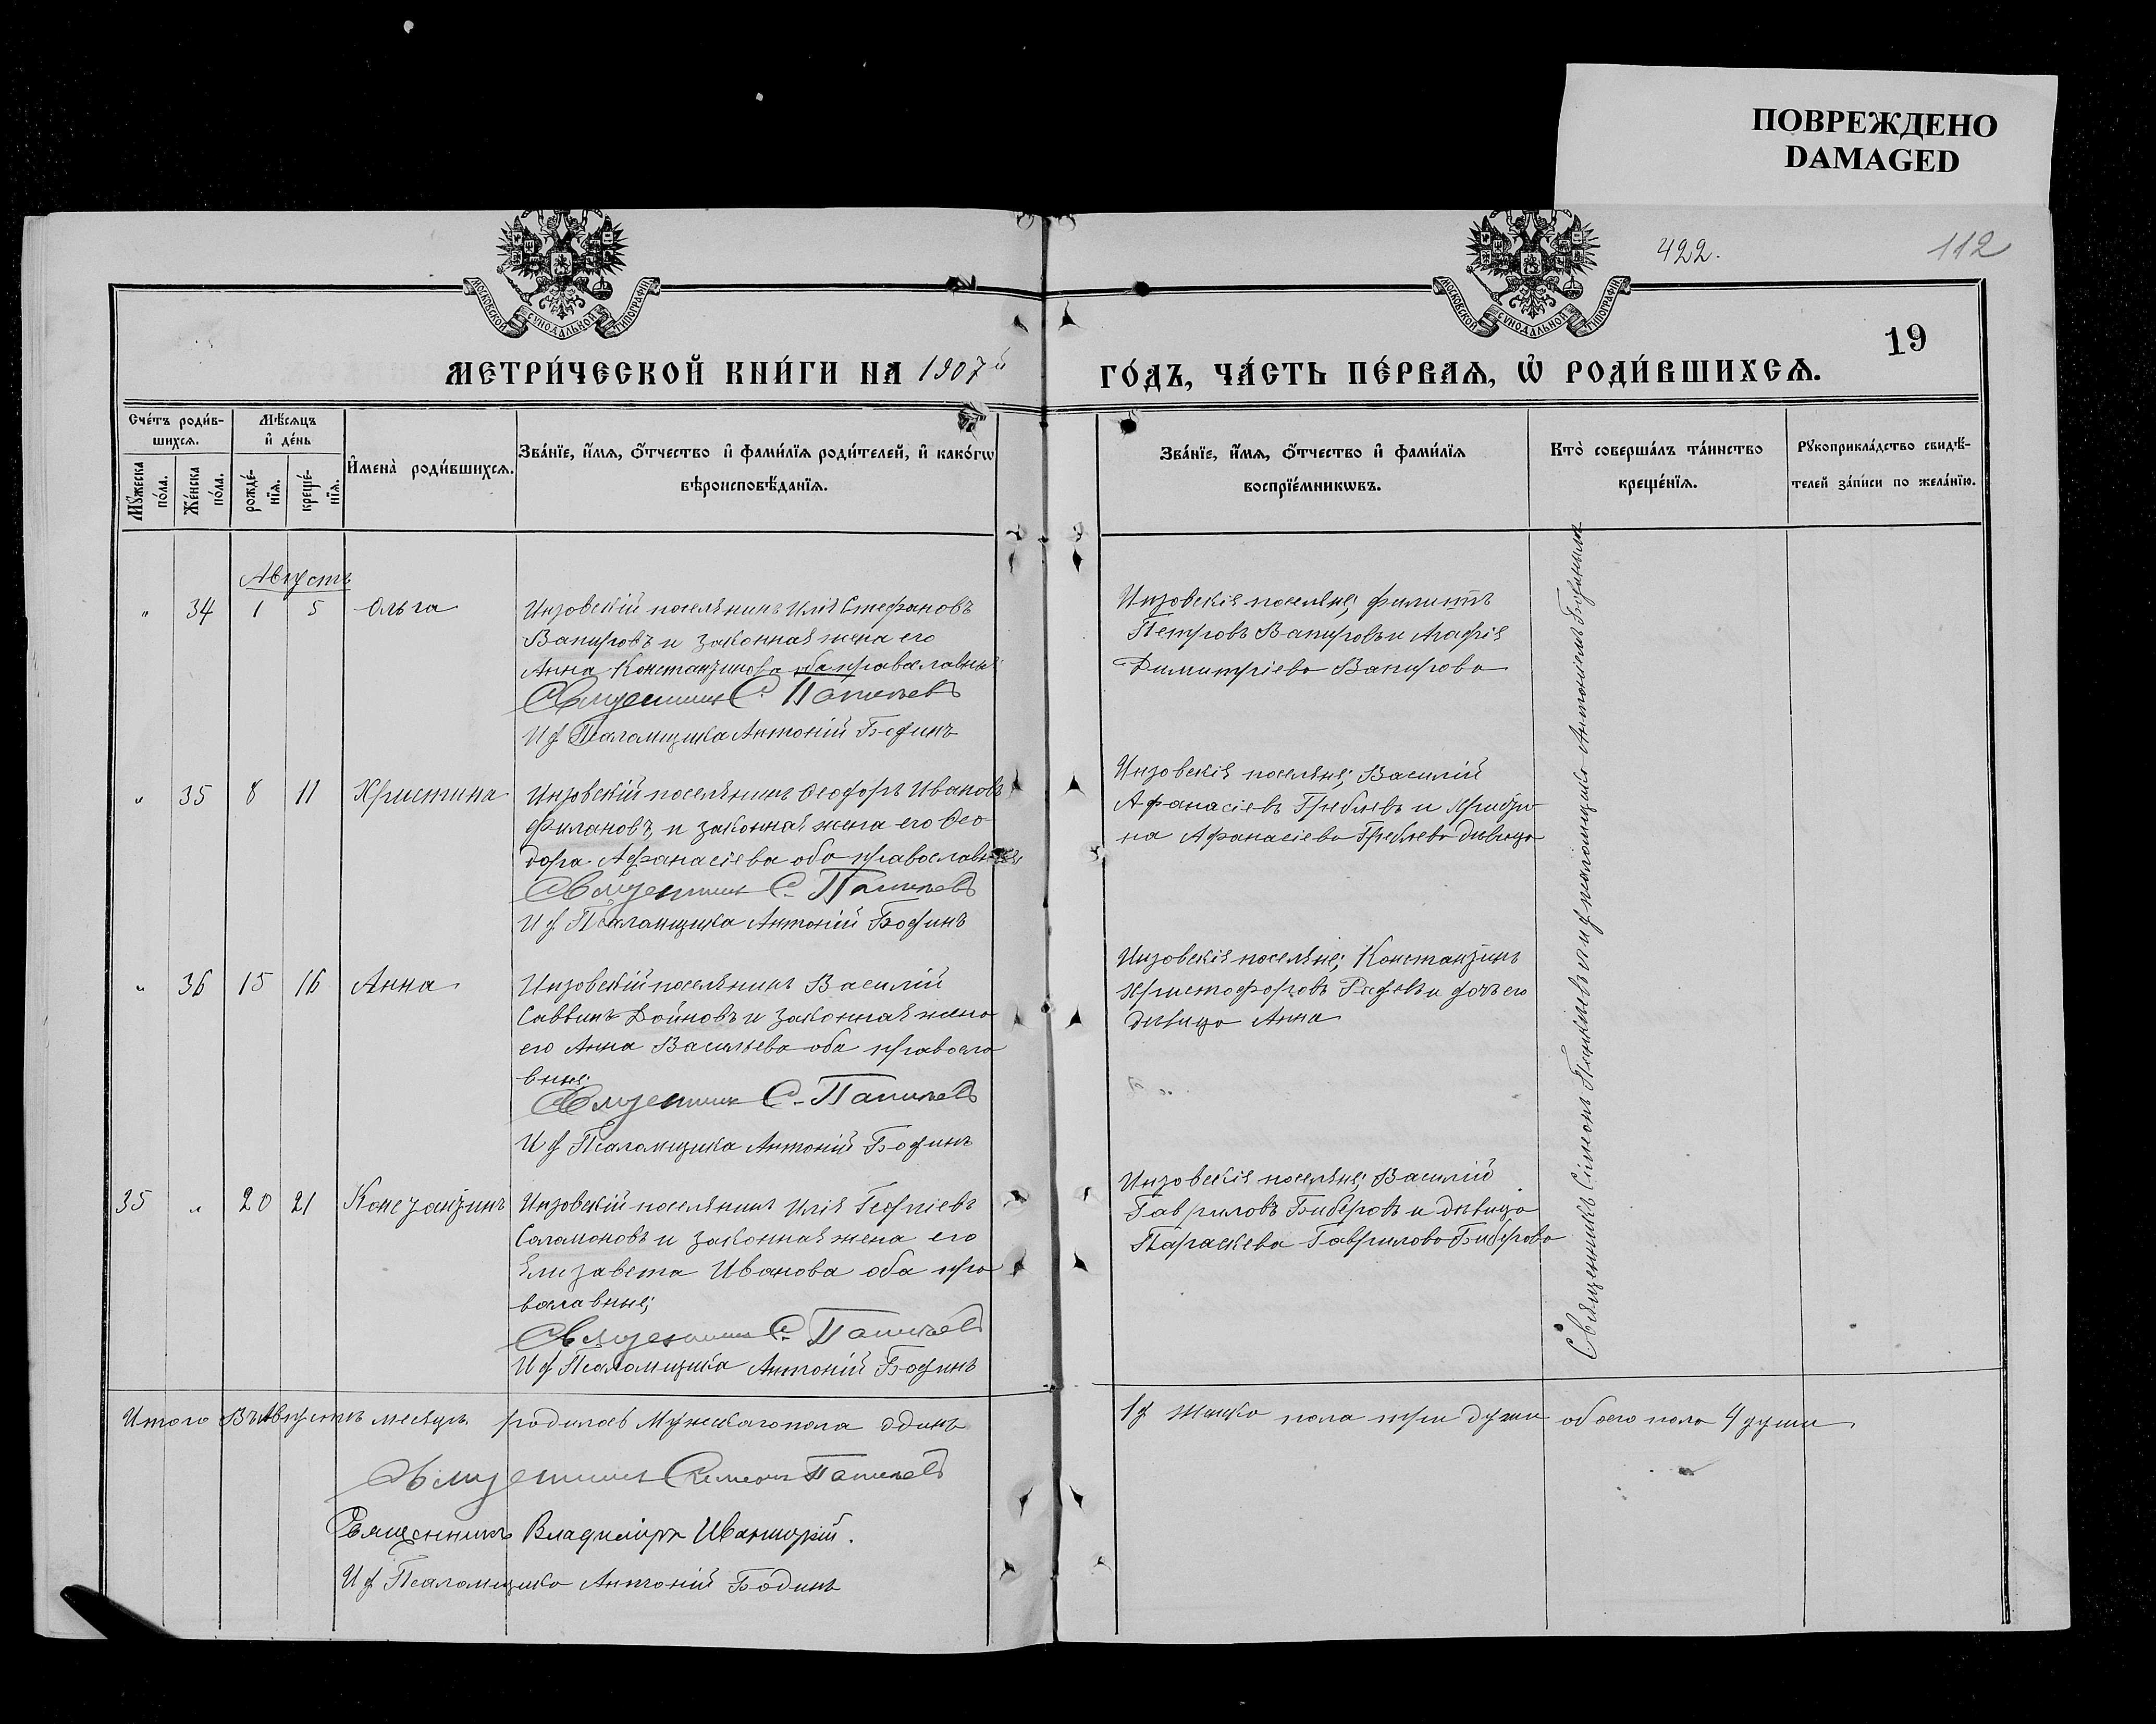 ПОВРЕЖДЕНО
DAMAGED
422.
112
19
МОСКОВСКОЙ СУНОДАЛЬНОЙ ТИПОГРАФІИ
МОСКОВСКОЙ СУНОДАЛЬНОЙ ТИПОГРАФІИ
МЕТРИ́ЧЕСКОЙ КНИ́ГИ НА 1907й
ГО́ДЪ, ЧА́СТЬ ПЕ́РВАѦ, Ѡ҆ РОДИ́ВШИХСѦ.
Сче́тъ роди́в-
шихсѧ.
Мꙋ́жеска по́ла.
Же́нска по́ла.
Мѣ́сѧцъ
и҆ де́нь
рожде́-нїѧ.
креще́-нїѧ.
И҆мена̀ роди́вшихсѧ.
Зва́нїе, и҆́мѧ, ѻ҆́тчество и҆ фами́лїѧ роди́телей, и҆ како́гѡ
вѣроисповѣ́данїѧ.
Зва́нїе, и҆́мѧ, ѻ҆́тчество и҆ фами́лїѧ
воспрїе́мникѡвъ.
Кто̀ соверша́лъ та́инство
креще́нїѧ.
Рꙋкоприкла́дство свидѣ́-
телей за́писи по жела́нїю.
Августъ
" 34 1 5 Ольга
Инзовскій поселянинъ Илія Стефановъ
Вапировъ и законная жена его
Анна Константинова оба православные
Священникъ С. Папичевъ
И д Псаломщика Антоній Бодинъ
Инзовскія поселяне; Филиппъ
Петровъ Вапировъ и Агафія
Димитріева Вапирова
" 35 8 11 Христина
Инзовскій поселянинъ Ѳеодоръ Ивановъ
Филановъ, и законная жена его Ѳео-
дора Афанасіева оба православные
Священникъ С. Папичевъ
И д Псаломщика Антоній Бодинъ
Инзовскія поселяне; Василій
Афанасіевъ Греблевъ и
на Афанасіева Греблева дивица
" 36 15 16 Анна
Инзовскій поселянинъ Василій
Саввинъ Дойновъ и законная жена
его Анна Васильева оба правосла
вные;
Священникъ С. Папичевъ
И д Псаломщика Антоній Бодинъ
Инзовскія поселяне; Константинъ
Христофоровъ и дочь его
дивица Анна
35 " 20 21 Константинъ
Инзовскій поселянинъ Илія Георгіевъ
Саламоновъ и законная жена его
Елизавета Иванова оба пра
вославные;
Священникъ С. Папичевъ
И д Псаломщика Антоній Бодинъ
Инзовскія поселяне; Василій
Гавриловъ Биберовъ и дивица
Параскева Гаврилова Биберова
Священникъ Сімеонъ и д псаломщика Антоніемъ Бодинымъ
Итого въ Августъ месяцъ родилось Мужескаго пола одинъ
1 д Женско пола три души обоего пола 4 души
Священникъ Симеонъ Папичевъ
Священникъ Владиміръ Иваницкій.
И д Псаломщика Антоній Бодинъ